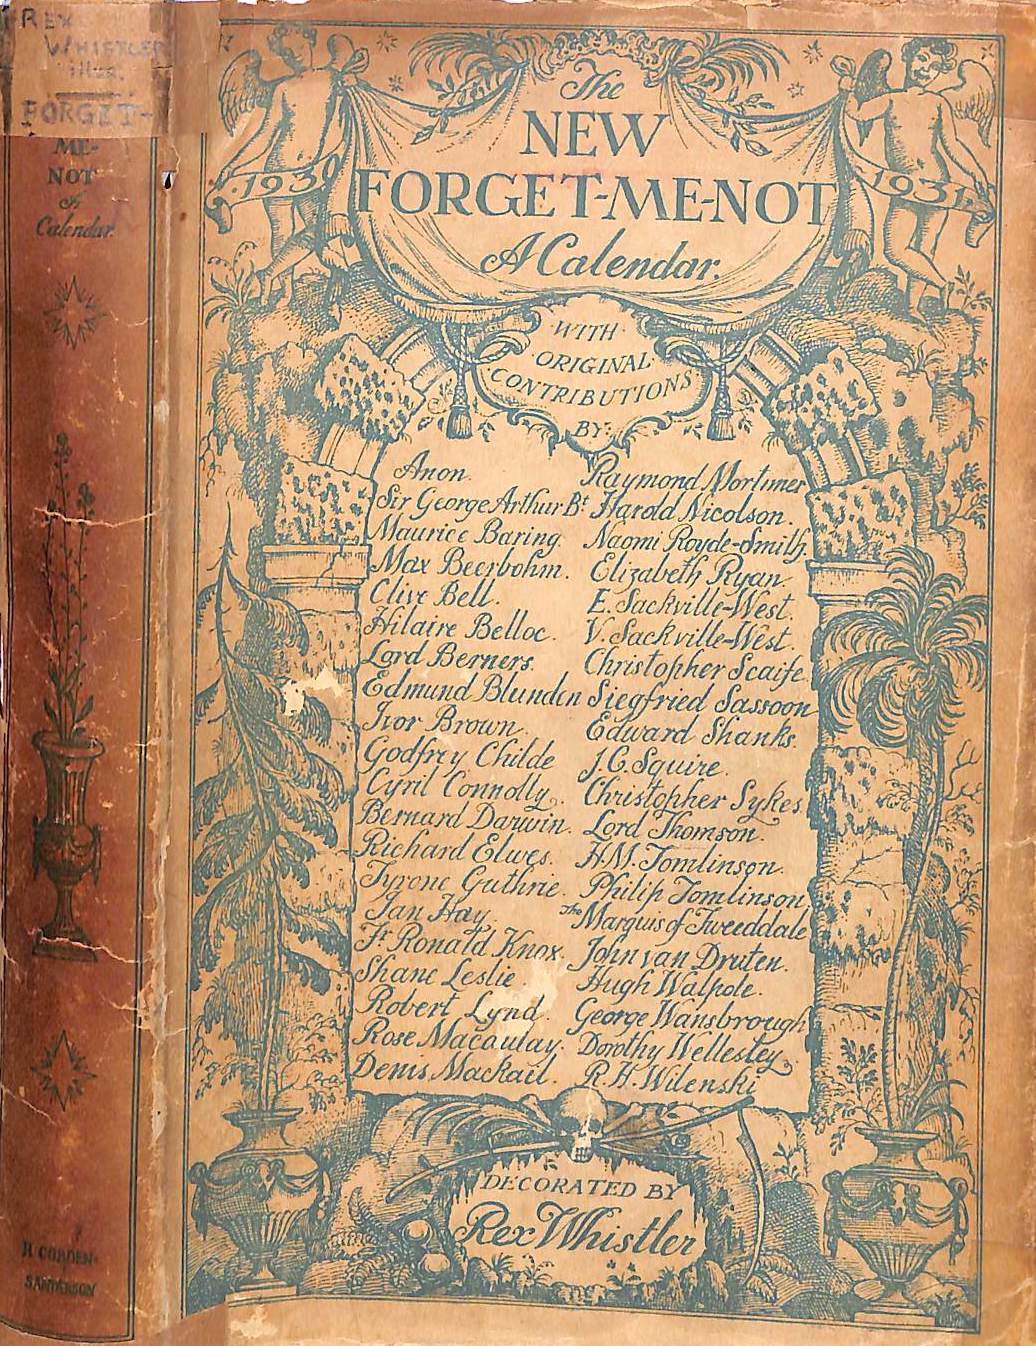 REX
WHISTLER
illus.
FORGET-
ME-
NOT
A
Calendar.
R COBDEN-
SANDERSON
The
NEW
1930
FORGET-ME-NOT
1931
A Calendar.
WITH
ORIGINAL
CONTRIBUTIONS
BY:
Anon.
Sir George Arthur Bt
Maurice Baring
Max Beerbohm.
Clive Bell.
Hilaire Belloc.
Lord Berners.
Edmund Blunden
Ivor Brown.
Godfrey Childe
Cyril Connolly.
Bernard Darwin.
Richard Elwes.
Tyrone Guthrie.
Ian Hay.
Fr. Ronald Knox.
Shane Leslie
Robert Lynd.
Rose Macaulay.
Denis Mackail.
Raymond Mortimer
Harold Nicolson.
Naomi Royde-Smith.
Elizabeth Ryan.
E. Sackville-West.
V. Sackville-West.
Christopher Scaife.
Siegfried Sassoon
Edward Shanks.
J.C. Squire.
Christopher Sykes
Lord Thomson.
H.M. Tomlinson.
Philip Tomlinson
The Marquis of Tweeddale
John van Druten.
Hugh Walpole.
George Wansbrough
Dorothy Wellesley.
R.H. Wilenski
DECORATED BY
Rex Whistler